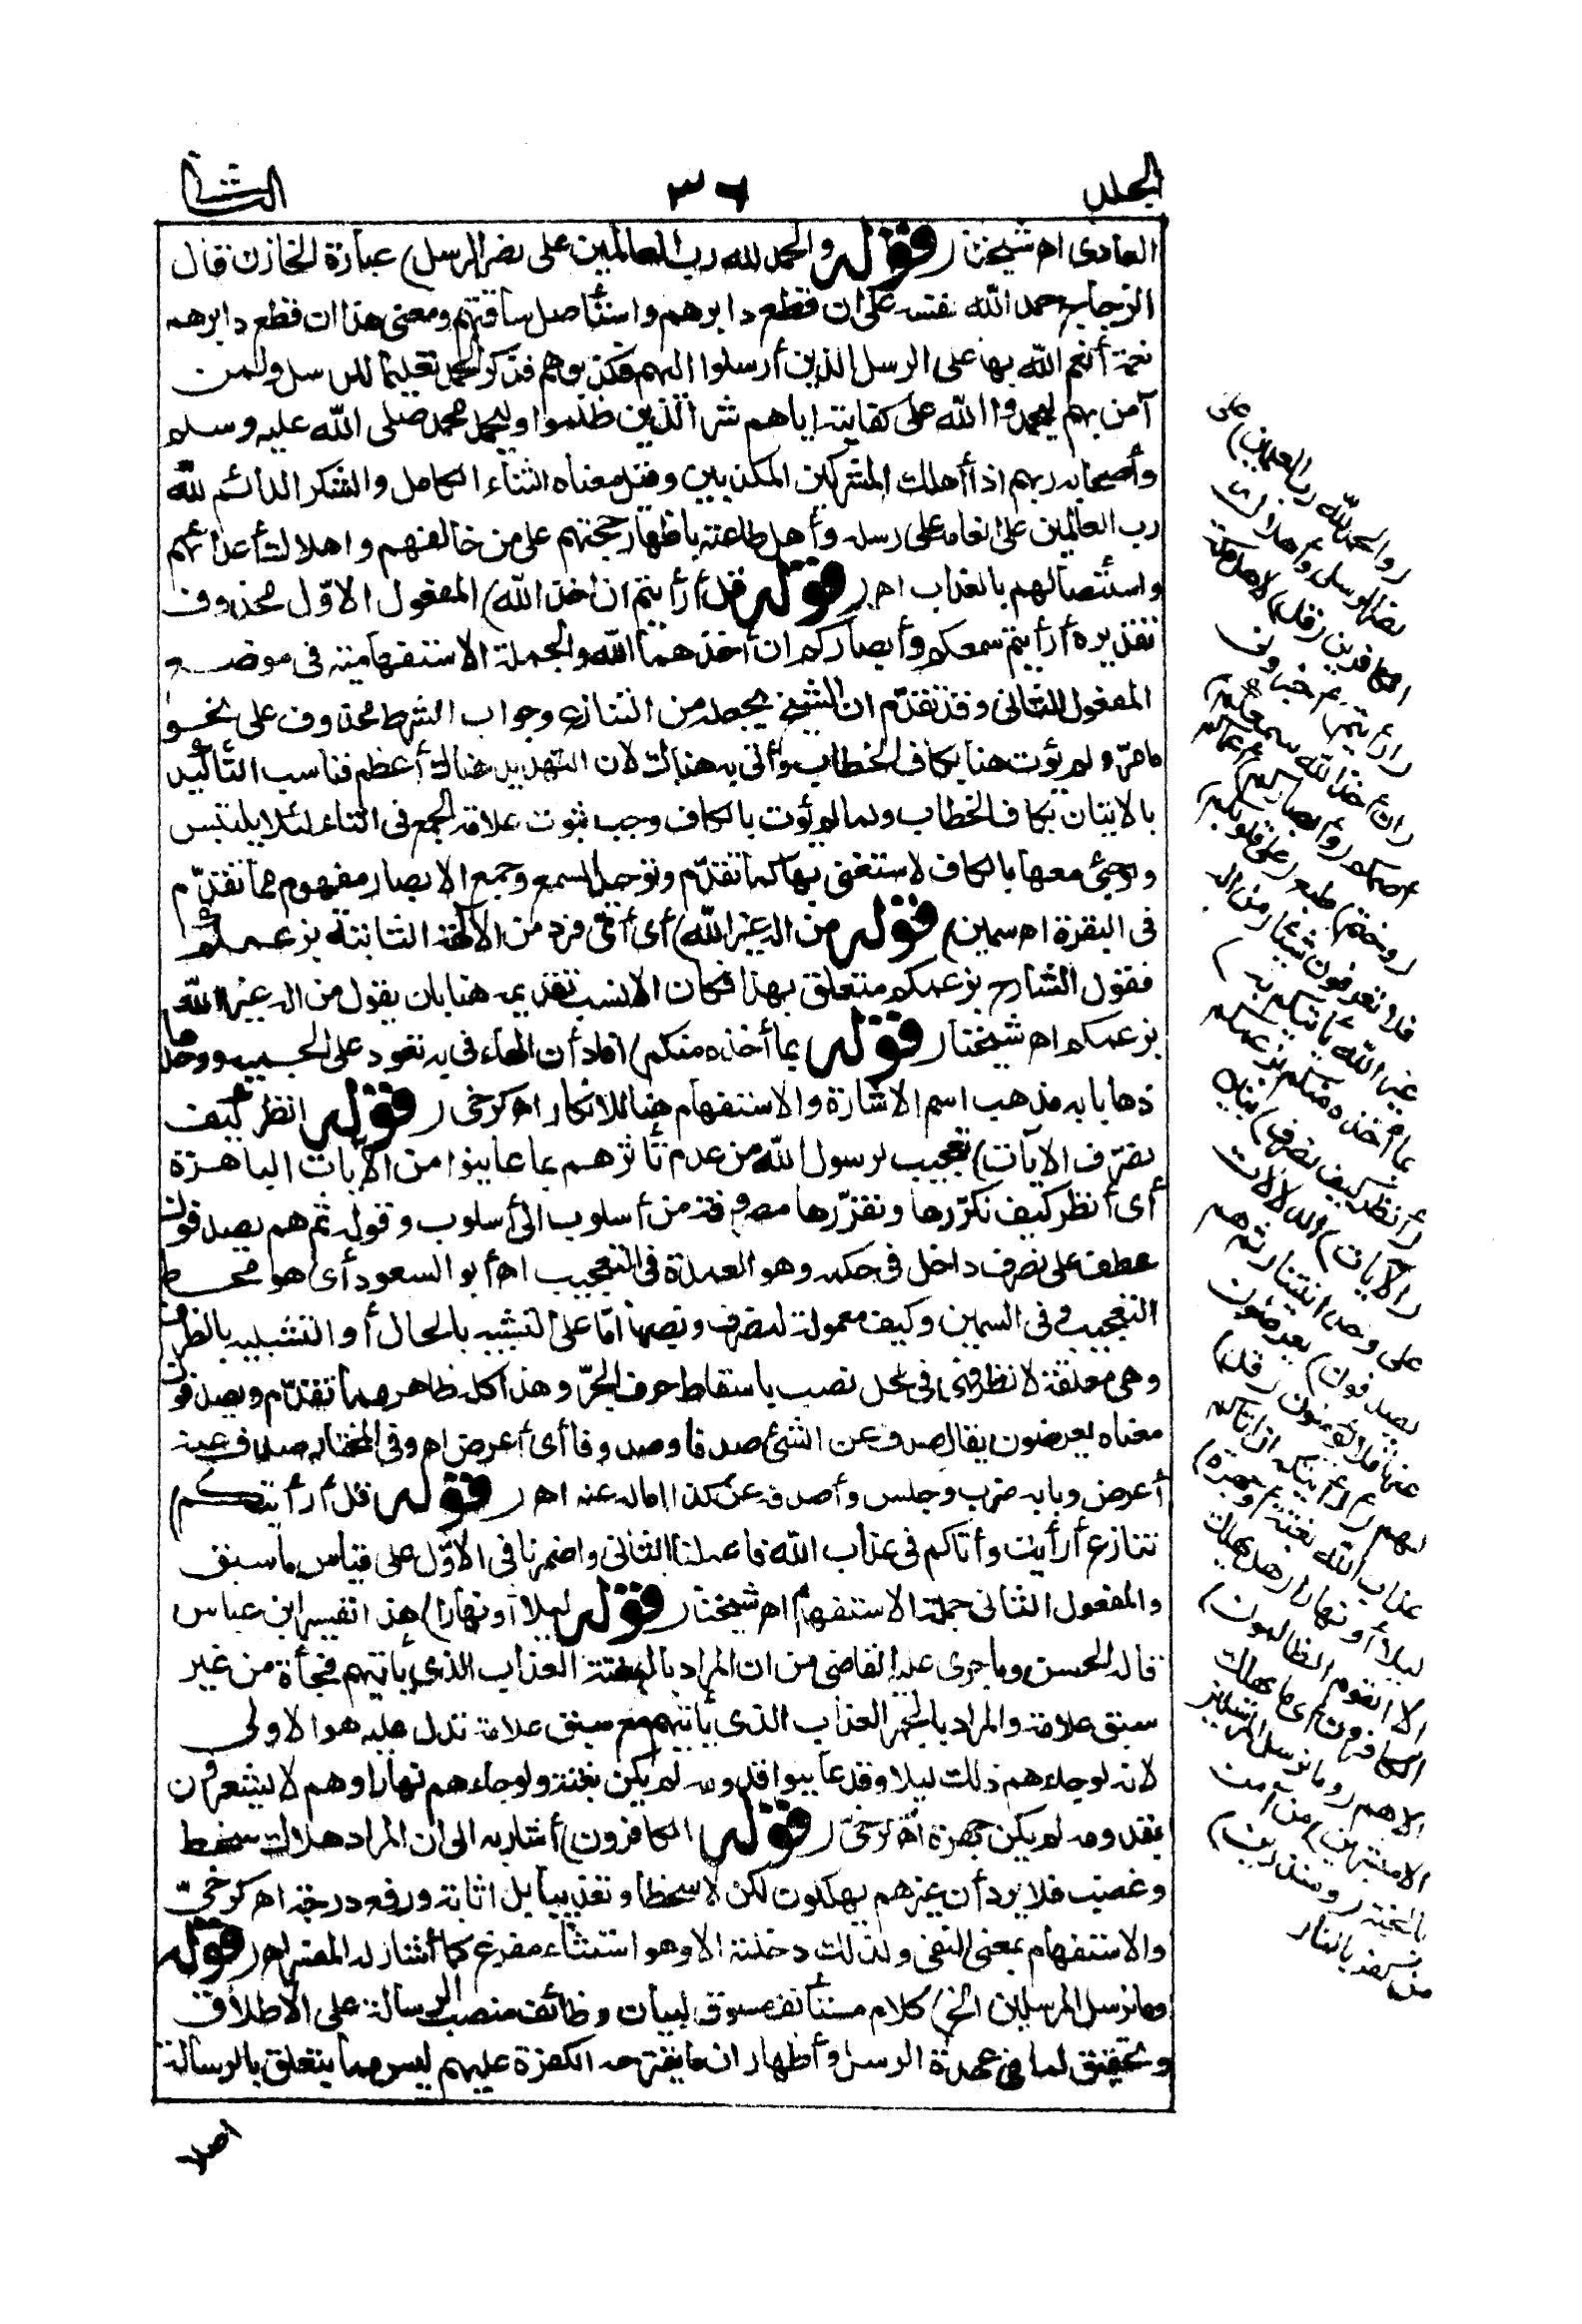 الجلد
٣٦
الثانى
العادى اه شيخنا (قوله والحمد لله رب العالمين على نصر الرسل) عبارة الخازن قال
الزجاج حمد الله نفسه على ان قطع دابرهم واستأصل ساقتهم ومعنى هذا ان قطع دابرهم
نعمة أنعم الله بها على الرسل الذين أرسلوا اليهم فكذبوهم فذكر الحمد تعليما للرسل ولمن
آمن بهم ليحمدوا الله على كفايته اياهم شر الذين ظلموا وليحمد محمد صلى الله عليه وسلم
وأصحابه ربهم اذا أهلك المشركين المكذبين وقيل معناه الثناء الكامل والشكر الدائم لله
رب العالمين على انعامه على رسله وأهل طاعته باظهار حجتهم على من خالفهم واهلاك أعدائهم
واستئصالهم بالعذاب اه (قوله قل أرأيتم ان أخذ الله) المفعول الاوّل محذوف
تقديره أرأيتم سمعكم وأبصاركم ان أخذهما الله والجملة الاستفهامية فى موضع
المفعول الثانى وقد تقدّم ان الشيخ يجعله من التنازع وجواب الشرط محذوف على نحو
مامرّ ولم يؤت هنا بكاف الخطاب وأتى به هناك لان التهديد هناك أعظم فناسب التأكيد
بالاتيان بكاف الخطاب ولما لم يؤت بالكاف وجب ثبوت علامة الجمع فى التاء لئلا يلتبس
ولو جئ معها بالكاف لاستغنى بها كما تقدّم وتوحيد السمع وجمع الابصار مفهوم مما تقدّم
فى البقرة اه سمين (قوله من اله غير الله) أى أىّ فرد من الآلهة الثابتة بزعمكم
فقول الشارح بزعمكم متعلق بهذا فكان الانسب تقديمه هنا بان يقول من اله غير الله
بزعمكم اه شيخنا (قوله بما أخذه منكم) أفاد أن الهاء فى به تعود على الجميع ووحدها
ذهابا به مذهب اسم الاشارة والاستفهام هنا للانكار اه كرخى (قوله انظر كيف
نصرّف الآيات) تعجيب لرسول الله من عدم تأثرهم بما عاينوا من الآيات الباهرة
أى أنظر كيف نكرّرها ونقرّرها مصروفة من أسلوب الى أسلوب وقوله ثم هم يصدفون
عطف على نصرف داخل فى حكمه وهو العمدة فى التعجيب اه أبو السعود أى هو محط
التعجيب وفى السمين وكيف معمولة لنصرف ونصبها امّا على التشبيه بالحال أو التشبيه بالظرف
وهى معلقة لانظر فهى فى محل نصب باسقاط حرف الجرّ وهذا كله ظاهر مما تقدّم ويصدفون
معناه يعرضون يقال صدف عن الشئ صدفا وصدوفا أى أعرض اه وفى المختار صدف عنه
أعرض وبابه ضرب وجلس وأصدفه عن كذا اماله عنه اه (قوله قل أرأيتكم)
تنازع أرأيت وأتاكم فى عذاب الله فاعملنا الثانى واضمرنا فى الاوّل على قياس ما سبق
والمفعول الثانى جملة الاستفهام اه شيخنا (قوله ليلا أو نهارا) هذا تفسير ابن عباس
قاله الحسن وما جرى عليه القاضى من ان المراد بالبغتة العذاب الذى يأتيهم فجأة من غير
سبق علامة والمراد بالجهر العذاب الذى يأتيهم مع سبق علامة تدل عليه هو الاولى
لانه لو جاءهم ذلك ليلا وقد عاينوا قدومه لم يكن بغتة ولو جاءهم نهارا وهم لا يشعرون
بقدومه لم يكن جهرة اه كرخىّ (قوله الكافرون) أشار به الى ان المراد هلاك سخط
وغضب فلا يرد أن غيرهم يهلكون لكن لا سخطا وتعذيبا بل اثابة ورفع درجة اه كرخىّ
والاستفهام بمعنى النفى ولذلك دخلته الا وهو استثناء مفرغ كما أشار له المفسر اه (قوله
وما نرسل المرسلين الخ) كلام مستأنف مسوق لبيان وظائف منصب الرسالة على الاطلاق
وتحقيق لما فى عهدة الرسل وأظهار ان ما يقترحه الكفرة عليهم ليس مما يتعلق بالرسالة
اصلا
(والحمد لله رب العالمين) على
نصر الرسل واهلاك
الكافرين (قل) لاهل مكة
(أرأيتم) اخبرونى
(ان أخذ الله سمعكم)
اصمكم (وأبصاركم) اعماكم
(وختم) طبع (على قلوبكم)
فلا تعرفون شيئا (من اله
غير الله يأتيكم به)
بما أخذه منكم بزعمكم
(أنظر كيف نصرف) نبين
(الآيات) الدلالات
على وحدانيتنا (ثم هم
يصدفون) يعرضون
عنها فلا يؤمنون (قل)
لهم (أرأيتكم ان اتاكم
عذاب الله بغتة أو جهرة)
ليلا أو نهارا (هل يهلك
الا القوم الظالمون)
الكافرون أى ما يهلك
الا هم (وما نرسل المرسلين
الا مبشرين) من آمن
بالجنة (ومنذرين)
من كفر بالنار